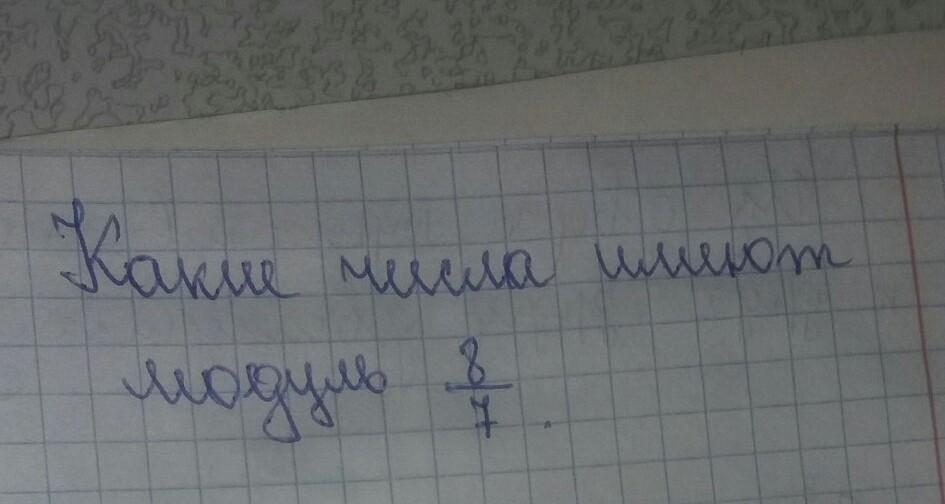 Какие числа имеют
модуль 8/7.